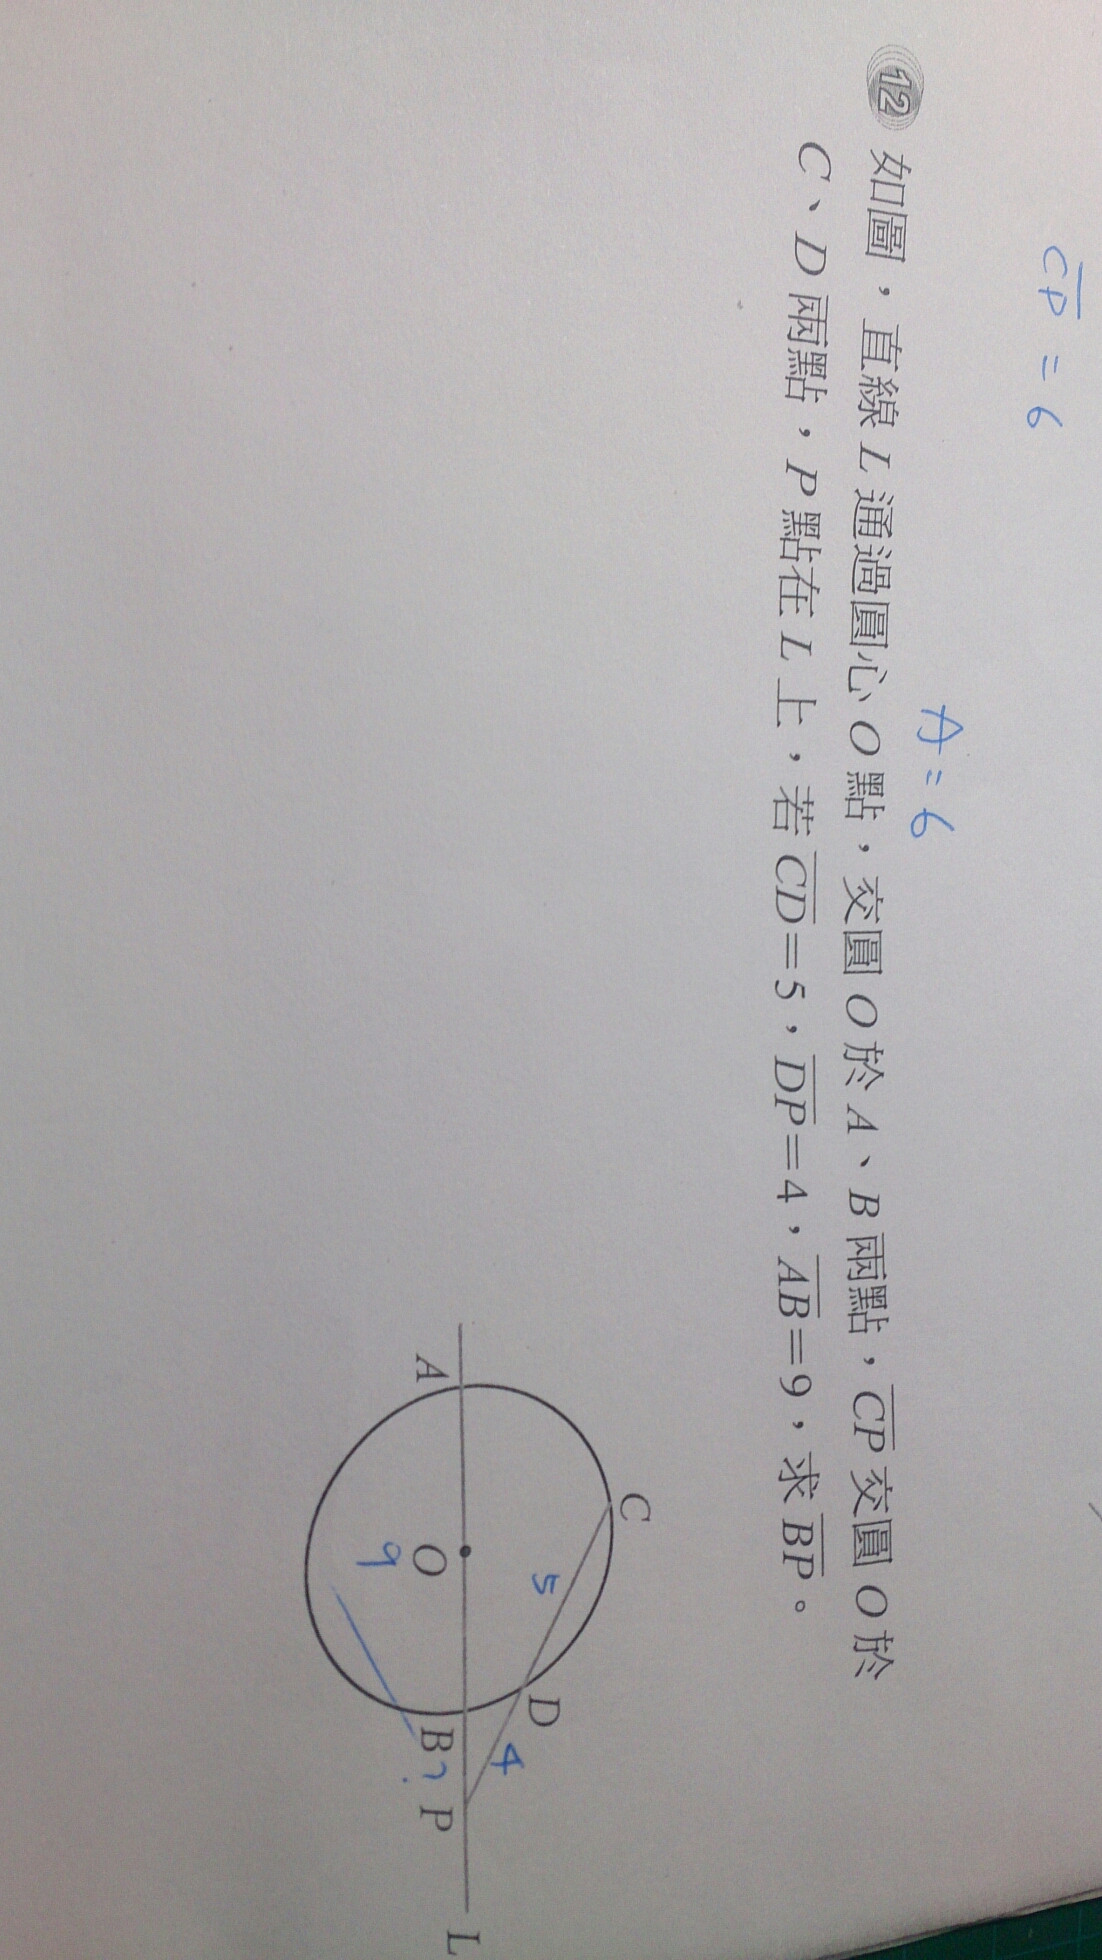 CP = 6
A = 6
12 如圖，直線 L 通過圓心 O 點，交圓 O 於 A、B 兩點，CP 交圓 O 於
C、D 兩點，P 點在 L 上，若 CD=5，DP=4，AB=9，求 BP。
C
5
D
4
A
O
9
B
?
P
L